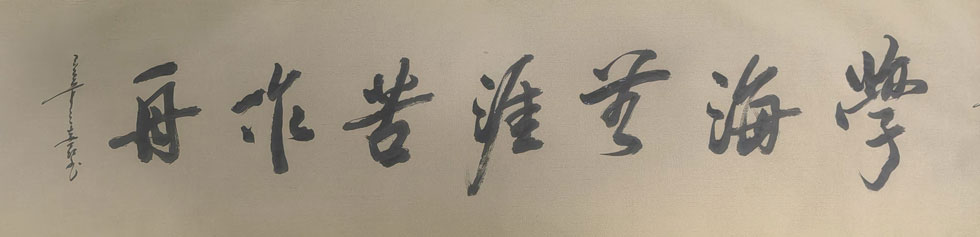 學海無涯苦作舟